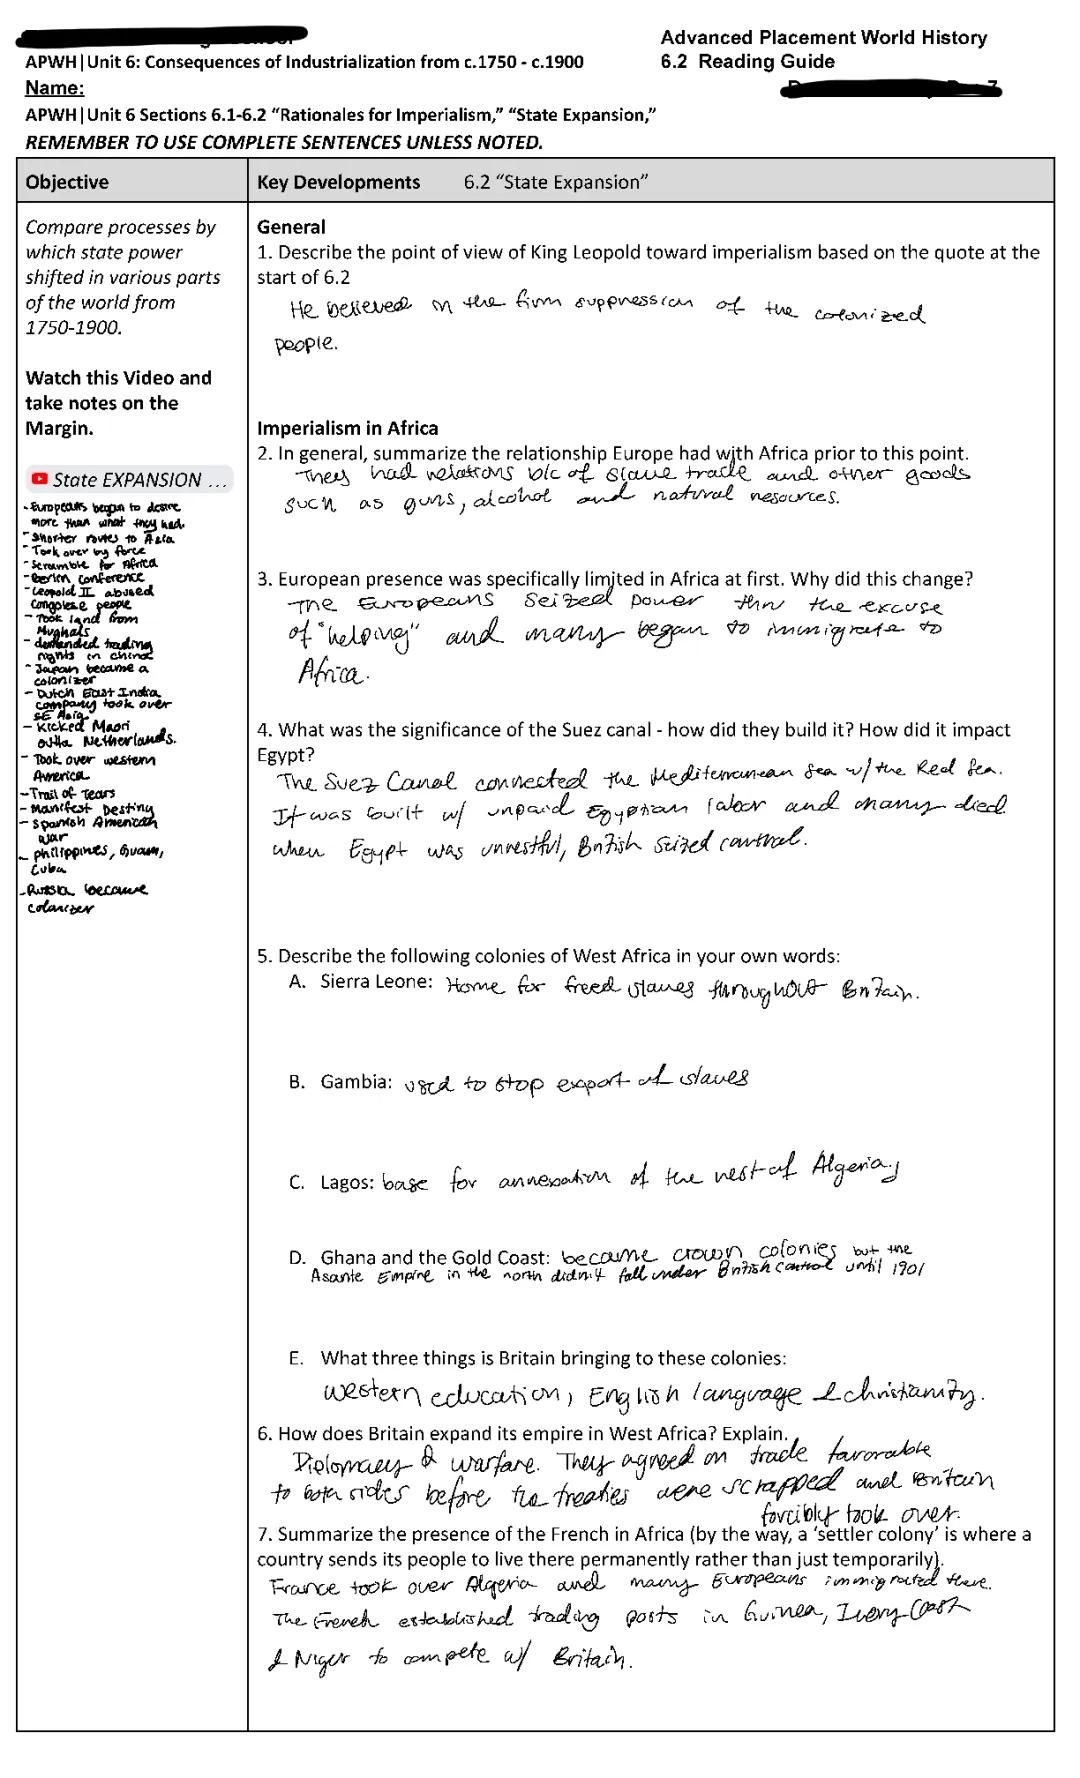 Advanced Placement World History
APWH|Unit 6: Consequences of Industrialization from c.1750 - c.1900
6.2 Reading Guide
Name:
APWH|Unit 6 Sections 6.1-6.2 “Rationales for Imperialism,” “State Expansion,”
REMEMBER TO USE COMPLETE SENTENCES UNLESS NOTED.
Objective
Compare processes by
which state power
shifted in various parts
of the world from
1750-1900.
Watch this Video and
take notes on the
Margin.
State EXPANSION ...
- Europeans began to desire
more than what they had.
- Shorter routes to Asia
- Took over by force
- Scramble for Africa
- Berlin conference
- Leopold II abused
congolese people
- Took land from
Mughals
- demanded trading
rights in china
- Japan became a
colonizer
- Dutch East India
company took over
SE Asia
- Kicked Maori
outta Netherlands.
- Took over western
America
- Trail of Tears
- Manifest Destiny
- Spanish American
war
- philippines, Guam,
Cuba
- Russia became
colonizer
Key Developments 6.2 “State Expansion”
General
1. Describe the point of view of King Leopold toward imperialism based on the quote at the
start of 6.2
He believed in the firm suppression of the colonized
people.
Imperialism in Africa
2. In general, summarize the relationship Europe had with Africa prior to this point.
They had relations b/c of slave trade and other goods
such as guns, alcohol and natural resources.
3. European presence was specifically limited in Africa at first. Why did this change?
The Europeans seized power thru the excuse
of "helping" and many began to immigrate to
Africa.
4. What was the significance of the Suez canal - how did they build it? How did it impact
Egypt?
The Suez Canal connected the Mediterranean Sea w/ the Red Sea.
It was built w/ unpaid Egyptian labor and many died
when Egypt was unrestful, British seized control.
5. Describe the following colonies of West Africa in your own words:
A. Sierra Leone: Home for freed slaves throughout Britain.
B. Gambia: used to stop export of slaves
C. Lagos: base for annexation of the rest of Algeria,
D. Ghana and the Gold Coast: became crown colonies but the
Asante Empire in the north didn't fall under British control until 1901
E. What three things is Britain bringing to these colonies:
Western education, English language & christianity.
6. How does Britain expand its empire in West Africa? Explain.
Diplomacy & warfare. They agreed on trade favorable
to both sides before the treaties were scrapped and Britain
forcibly took over.
7. Summarize the presence of the French in Africa (by the way, a ‘settler colony’ is where a
country sends its people to live there permanently rather than just temporarily).
France took over Algeria and many Europeans immigrated there.
The French established trading posts in Guinea, Ivory Coast
& Niger to compete w/ Britain.